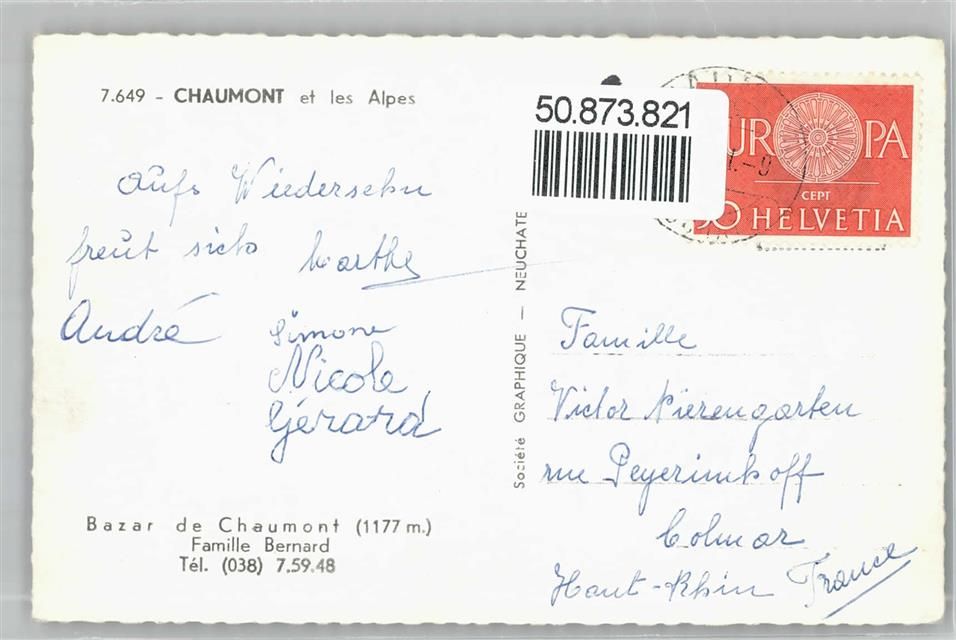 7.649 - CHAUMONT et les Alpes
50.873.821
EUROPA
CEPT
HELVETIA
aufs Wiedersehn
freut sich Marthe
André Simone
Nicole
Gérard
Société GRAPHIQUE — NEUCHATE
Famille
Victor Nierengarten
rue Peyerimhoff
Colmar
Haut-Rhin France
Bazar de Chaumont (1177 m.)
Famille Bernard
Tél. (038) 7.59.48